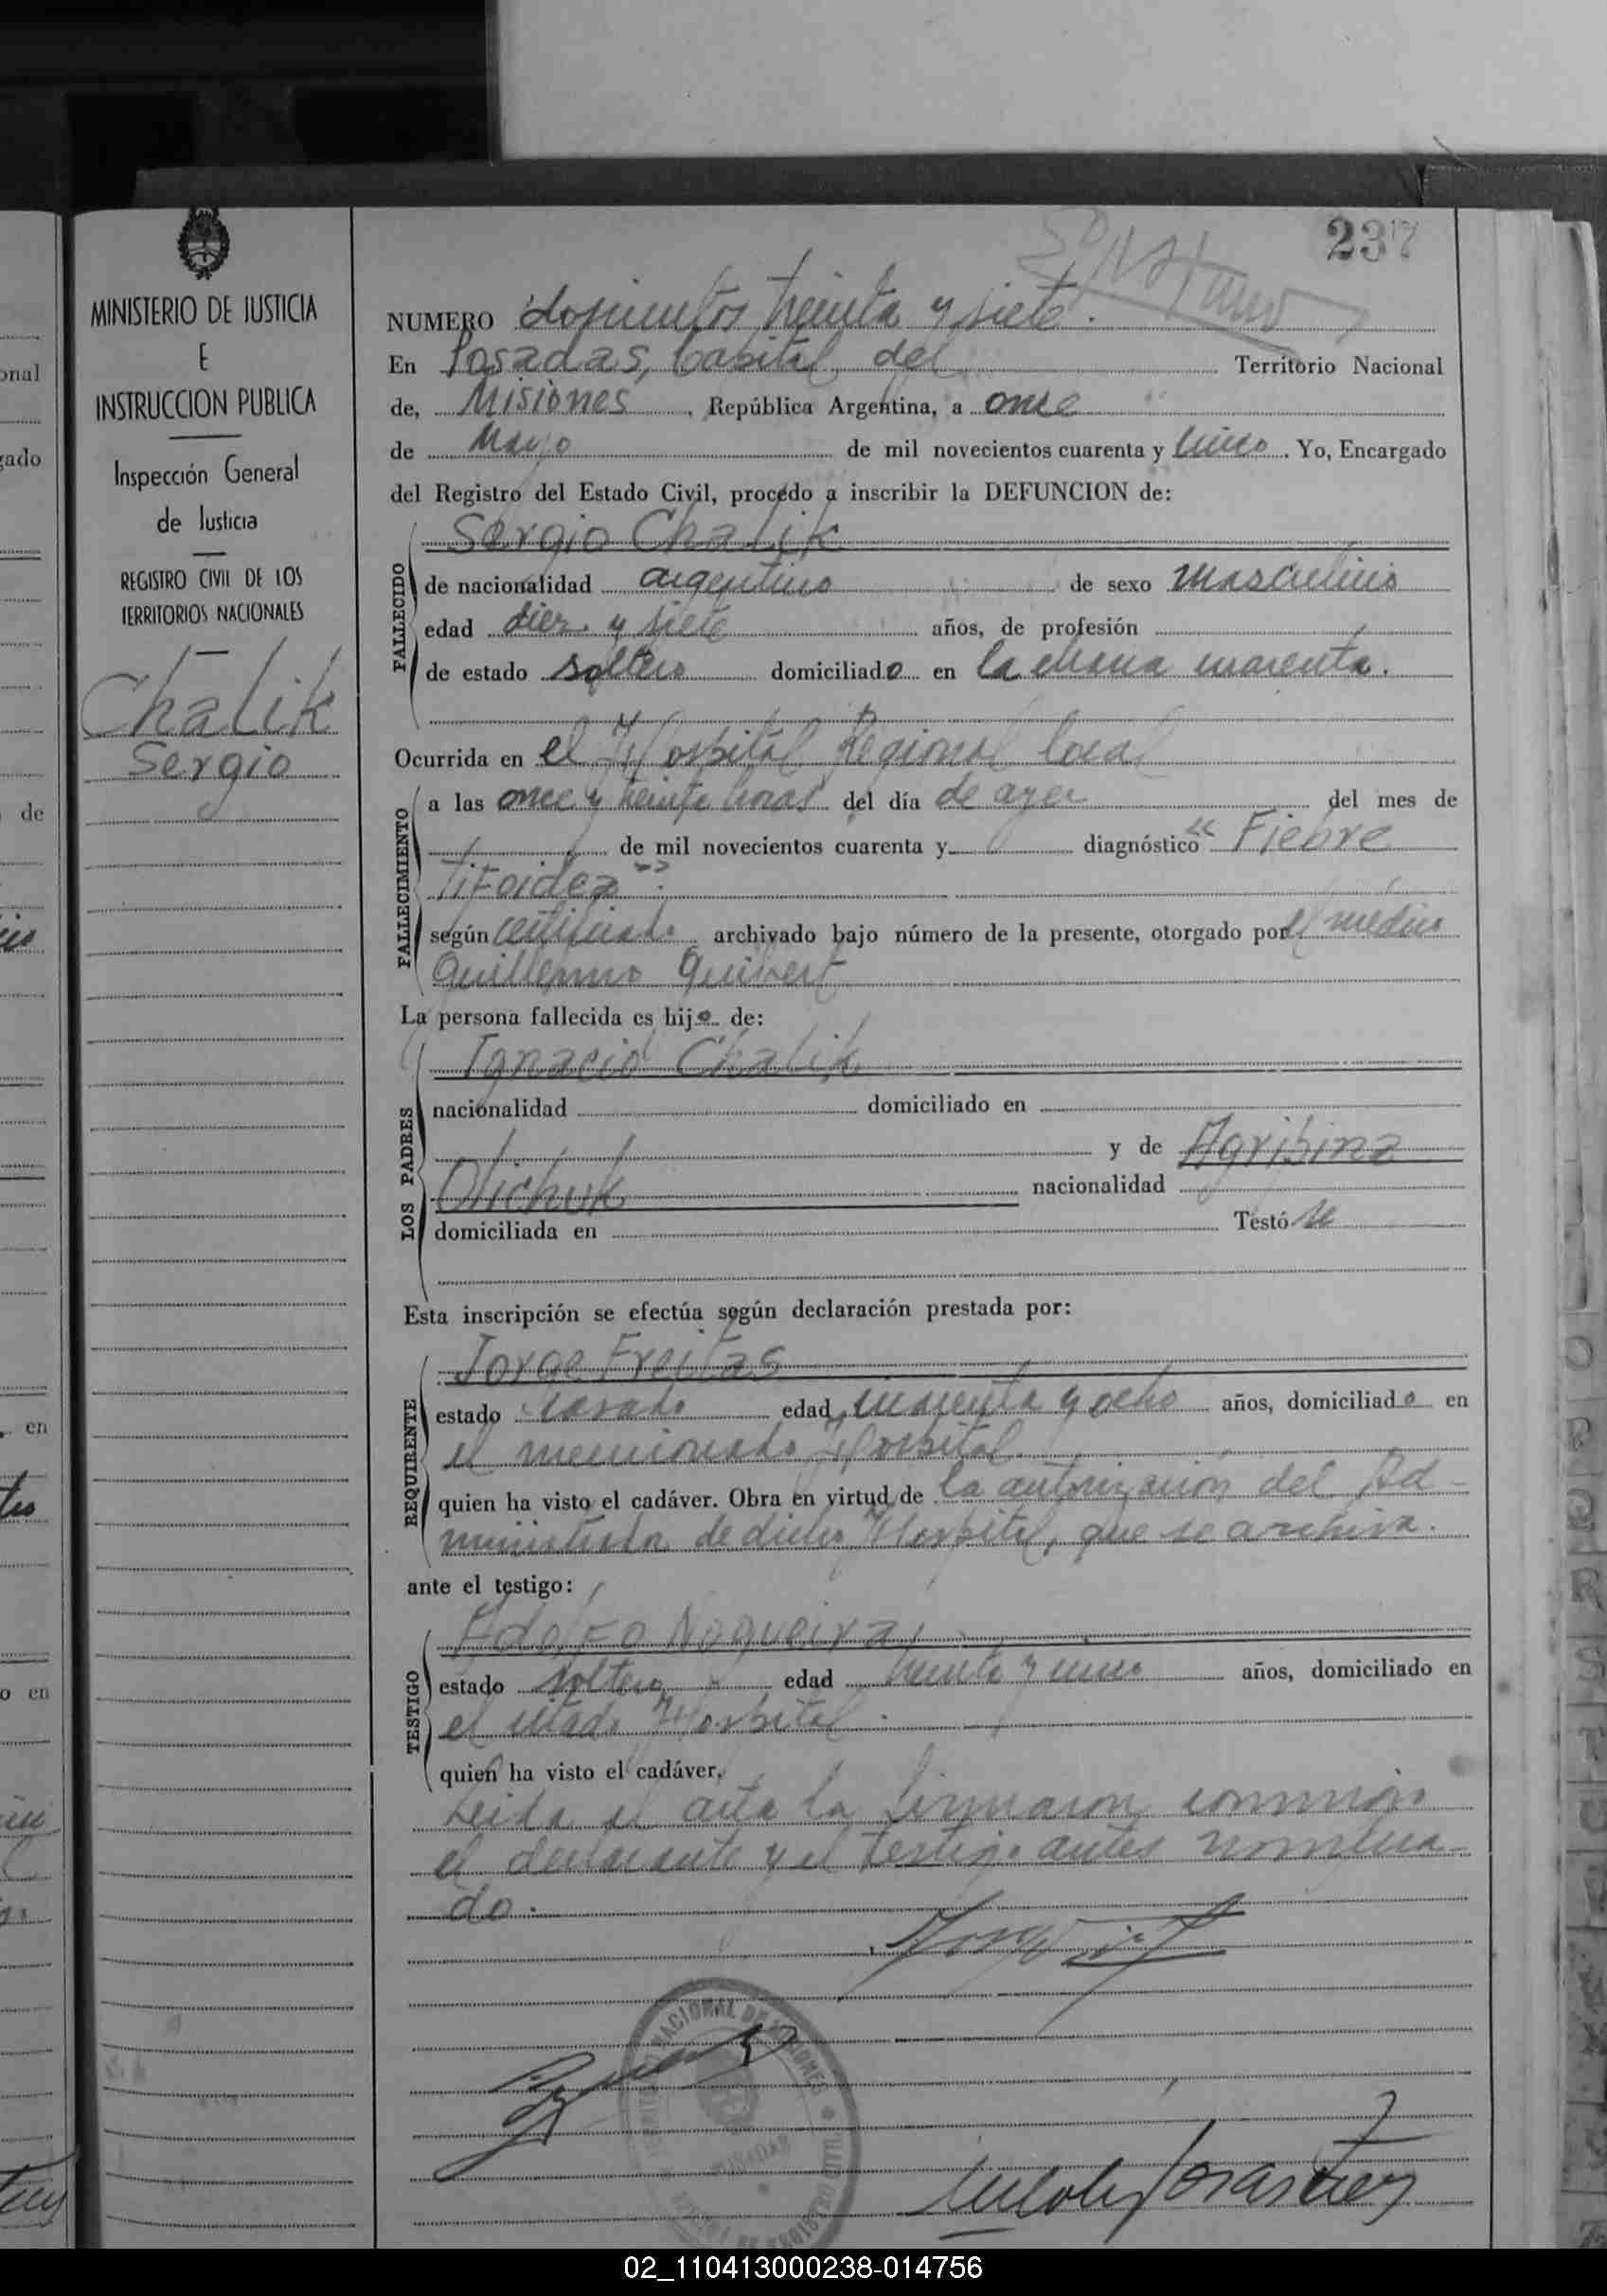 237
MINISTERIO DE JUSTICIA
E
INSTRUCCION PUBLICA
Inspección General
de Justicia
REGISTRO CIVIL DE LOS
TERRITORIOS NACIONALES
Chalik
Sergio
NUMERO doscientos treinta y siete.
En Posadas, Capital del Territorio Nacional
de, Misiones, República Argentina, a once
de Mayo de mil novecientos cuarenta y cinco. Yo, Encargado
del Registro del Estado Civil, procedo a inscribir la DEFUNCION de:
FALLECIDO
Sergio Chalik
de nacionalidad argentino de sexo masculino
edad diez y siete años, de profesión
de estado soltero domiciliado en la chacra cuarenta.
Ocurrida en el Hospital Regional local
FALLECIMIENTO
a las once y treinta horas del día de ayer del mes de
de mil novecientos cuarenta y diagnóstico "Fiebre
Tifoidea".
según certificado archivado bajo número de la presente, otorgado por el médico
Guillermo
La persona fallecida es hijo de:
LOS PADRES
Ignacio Chalik
nacionalidad domiciliado en
y de Agripina
Olichuk nacionalidad
domiciliada en Testó se
Esta inscripción se efectúa según declaración prestada por:
REQUIRENTE
Jorge Freitas
estado casado edad cuarenta y ocho años, domiciliado en
el mencionado Hospital
quien ha visto el cadáver. Obra en virtud de la autorización del Ad-
ministrador de dicho Hospital, que se archiva.
ante el testigo:
TESTIGO
Adolfo Nogueira
estado soltero edad treinta y cinco años, domiciliado en
el citado Hospital.
quien ha visto el cadáver.
Leida el acta la firmaron conmigo
el declarante y el testigo antes nombra-
do.
NACIONAL DE MISIONES
POSADAS
02_110413000238-014756